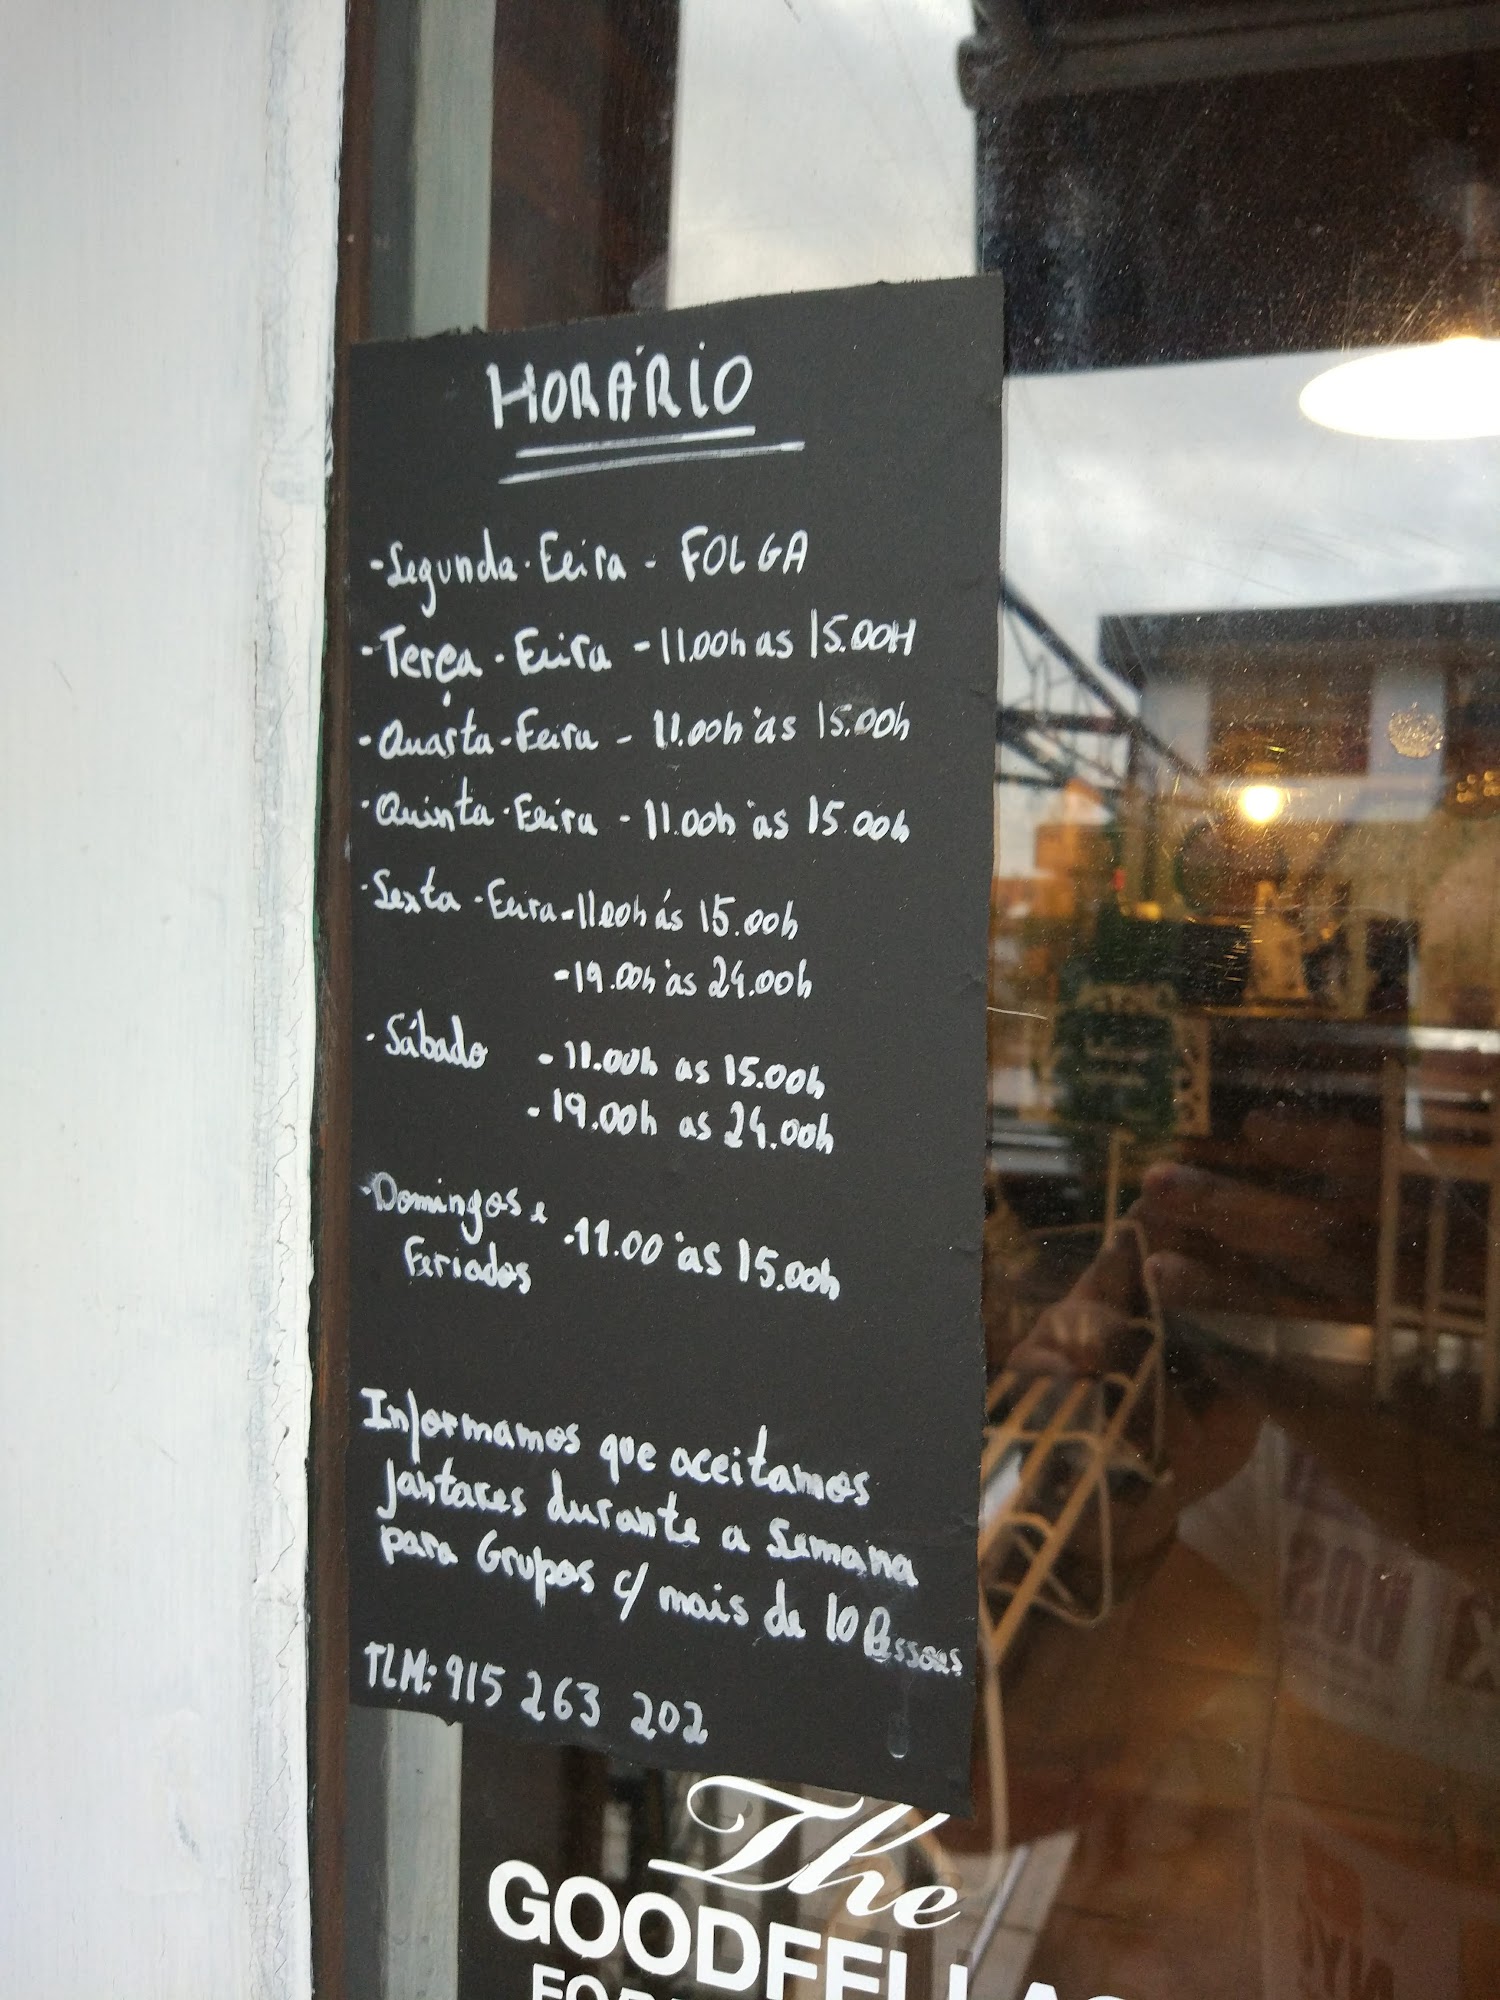 HORÁRIO
-Segunda-Feira - FOLGA
-Terça-Feira - 11.00h as 15.00H
-Quarta-Feira - 11.00h às 15.00h
-Quinta-Feira - 11.00h às 15.00h
-Sexta-Feira - 11.00h ás 15.00h
-19.00h às 24.00h
-Sábado - 11.00h as 15.00h
-19.00h as 24.00h
-Domingos e
Feriados -11.00 às 15.00h
Informamos que aceitamos
jantares durante a Semana
para Grupos c/ mais de 10 Pessoas
TLM: 915 263 202
The
GOODFELLAS